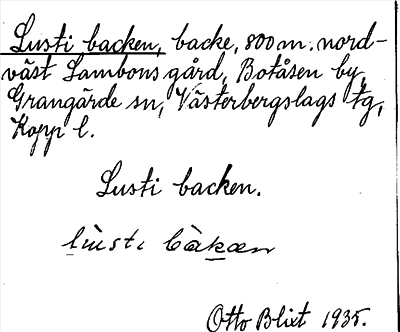 Lusti backen, backe, 800 m. nord-
väst Lambons gård, Botåsen by,
Grangärde sn, Västerbergslags tg,
Kopp l.
Lusti backen.
lùsti bàkæn
Otto Blixt 1935.